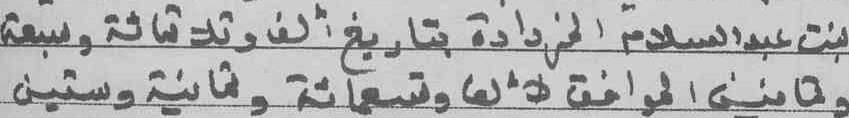 بنت عبد السلام المزدادة بتاريخ ألف وثلاثمائة وسبعة
وثمانين الموافق لألف وتسعمائة وثمانية وستين